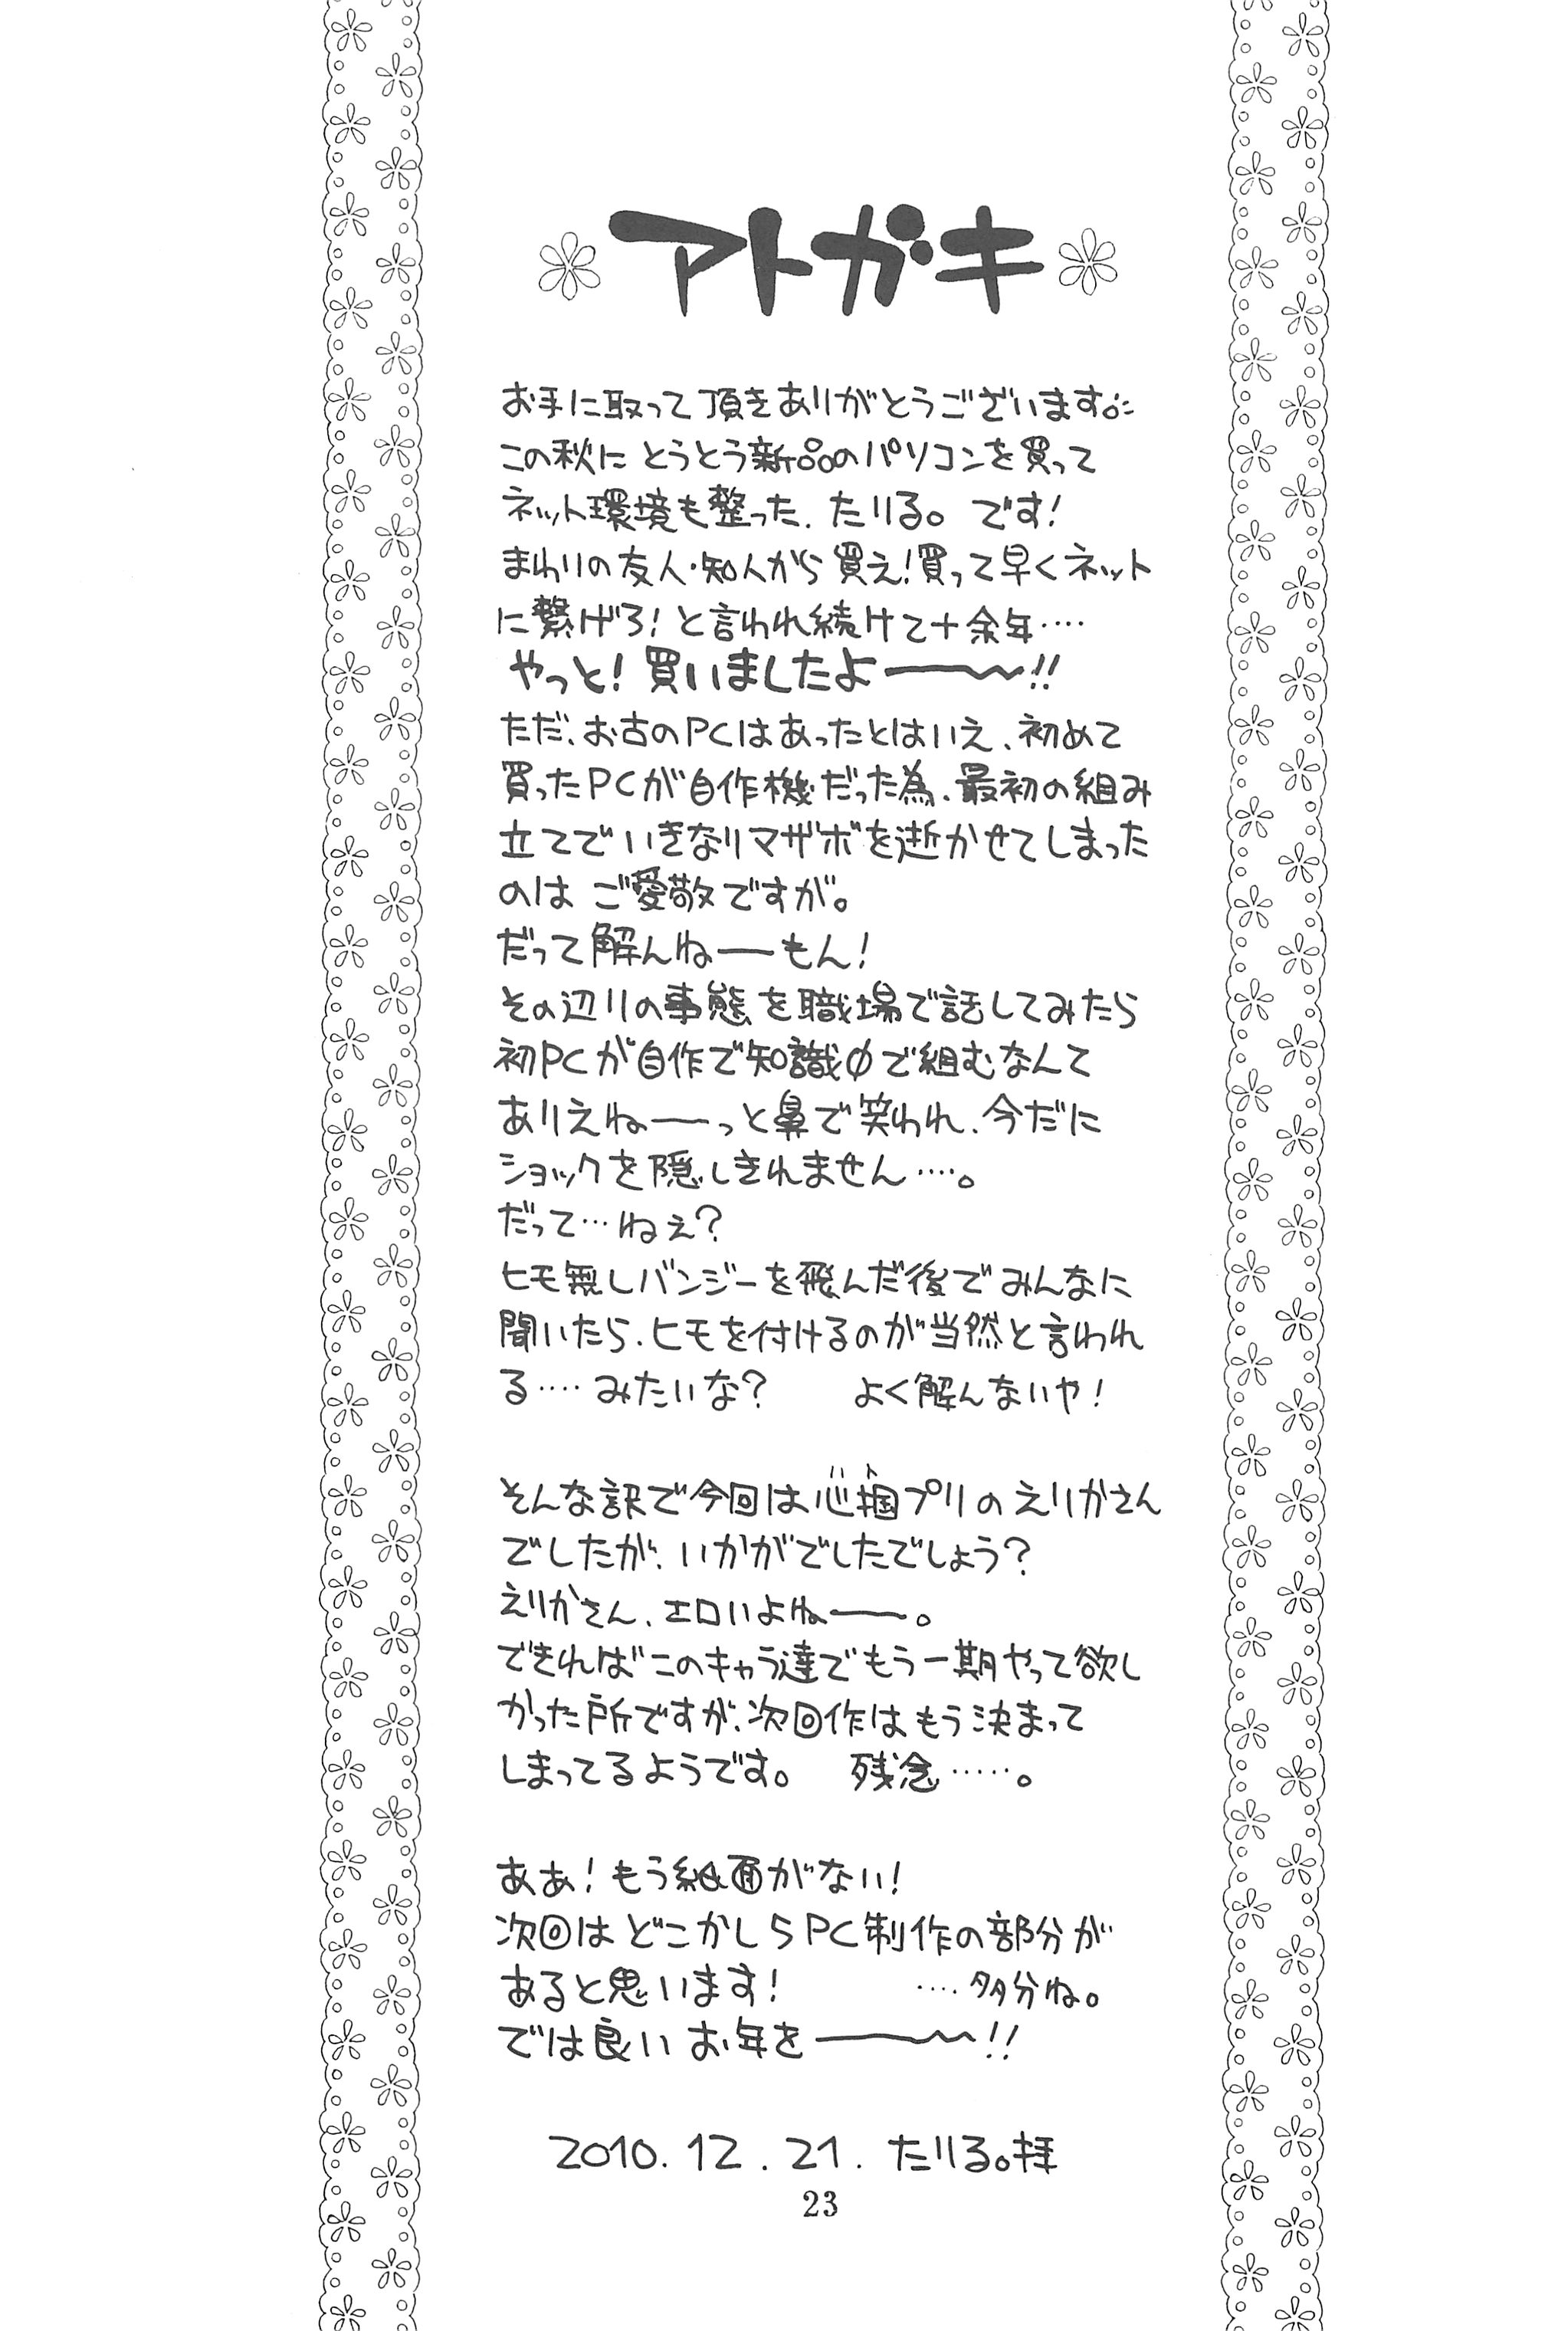 アトガキ
お手に取って頂きありがとうございます。
この秋に とうとう新品のパソコンを買って
ネット環境も整った、たリる。です!
まわりの友人・知人から買え!買って早くネット
に繋げろ!と言われ続けて十余年‥‥
やっと!買いましたよ――〜!!
ただ、お古のPCはあったとはいえ、初めて
買ったPCが自作機だった為、最初の組み
立てでいきなりマザボを逝かせてしまった
のは ご愛敬ですが。
だって解んねーもん!
その辺りの事態を職場で話してみたら
初PCが自作で知識0で組むなんて
ありえねーっと鼻で笑われ、今だに
ショックを隠しきれません‥‥。
だって…ねぇ?
ヒモ無しバンジーを飛んだ後でみんなに
聞いたら、ヒモを付けるのが当然と言われ
る‥‥みたいな? よく解んないや!
そんな訳で今回は心掴プリのえりかさん
ハト
でしたが、いかがでしたでしょう?
えりかさん、エロいよねー。
できればこのキャラ達でもう一期やって欲し
かった所ですが、次回作はもう決まって
しまってるようです。 残念‥‥‥。
ああ!もう紙面がない!
次回はどこかしらPC制作の部分が
あると思います! ‥‥多分ね。
では良いお年を――〜!!
2010.12.21. たリる。拝
23